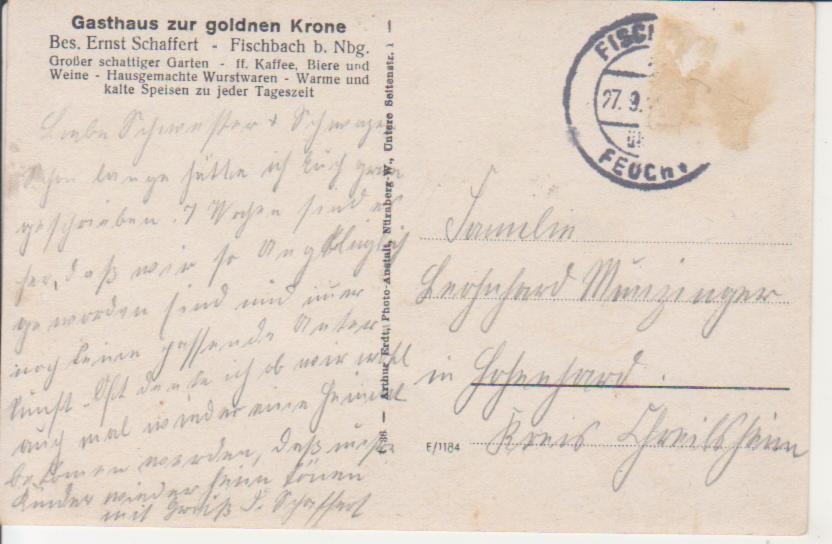 Gasthaus zur goldnen Krone
Bes. Ernst Schaffert - Fischbach b. Nbg.
Großer schattiger Garten - ff. Kaffee, Biere und
Weine - Hausgemachte Wurstwaren - Warme und
kalte Speisen zu jeder Tageszeit
Liebe Schwester + Schwager
Schon lange hätte ich Euch gern
geschrieben. 7 Wochen sind es
her, daß wir so Unglücklich
geworden sind und immer
noch keine passende Unter
kunft. Oft denke ich ob wir wohl
auch mal wieder eine Heimat
bekommen werden, daß unsre
Kinder wieder heim könen
mit Gruß S. Schaffert
Arthur Erdt, Photo-Anstalt, Nürnberg-W., Untere Seitenstr. 1
FISCH
27. 9.
FEUCHT
Familie
Bernhard Munzinger
in Hohenhard.
Kreis Chreilsheim
E/1184